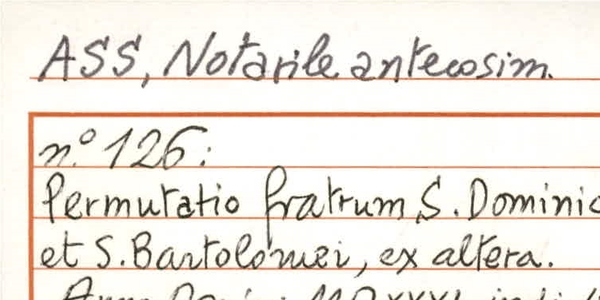 ASS, Notarile antecosim.
n.° 126:
Permutatio fratrum S. Dominic
et S. Bartolomei, ex altera.